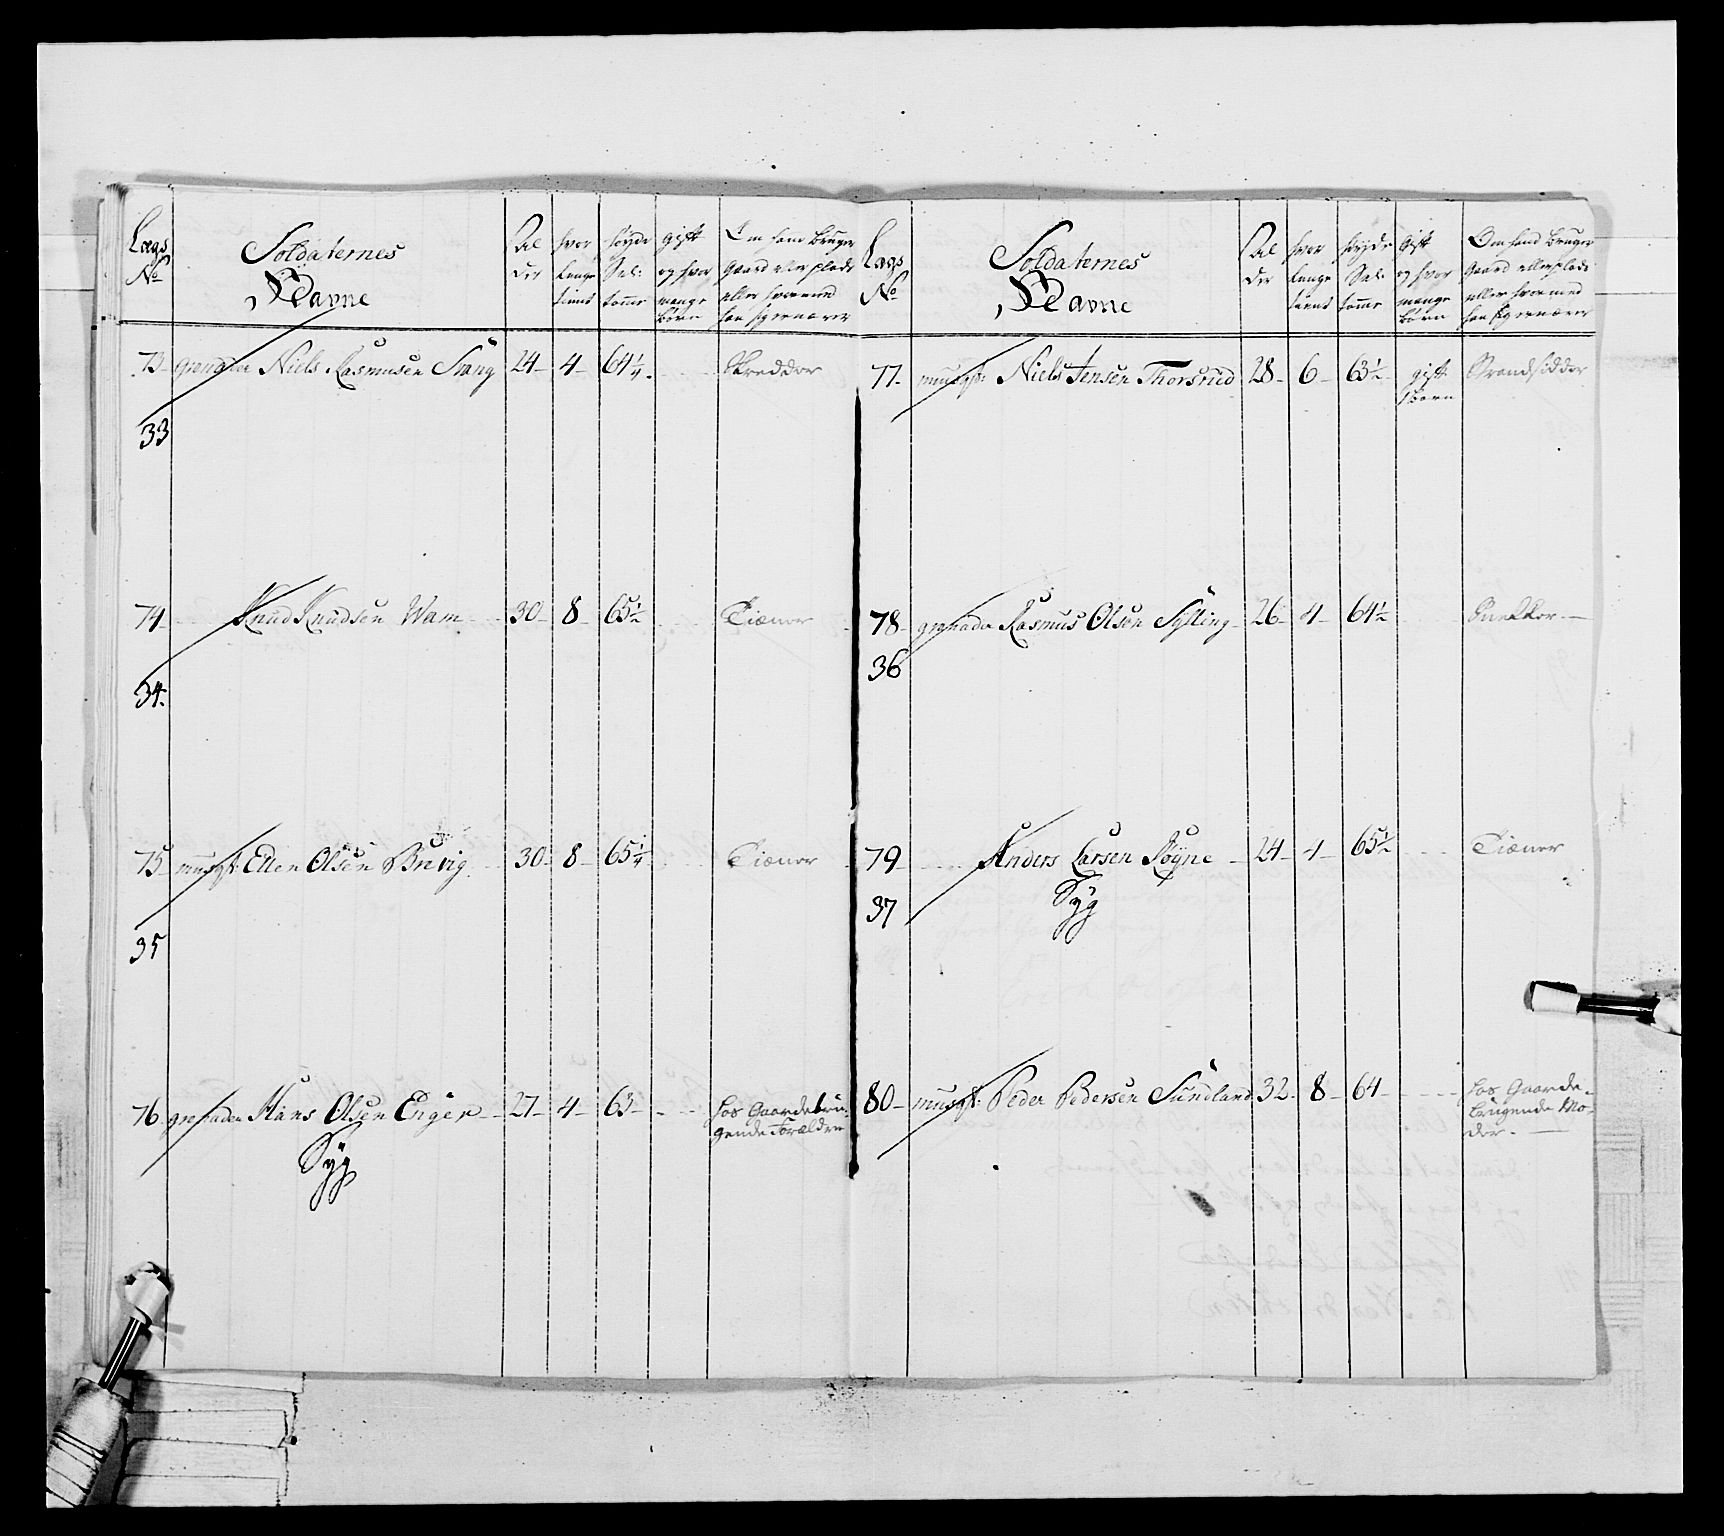 Lægs No
Soldaternes Navne
Al der
hvor længe tient
høyde Sal: tomr
gift og hvor mange børn
Om hand bruger Gaard eller plads eller hvormed han Ernærer
73 grenader Niels Rasmusen Stang 24 4 64¼ Skredder
33
74 Knud Knudsen Wam 30 8 65½ Tiæner
34.
75 musqt: Ellen Olsen Brevig 30 8 65¼ Tiæner
35
76 grenader Hans Olsen Enger 27 4 63 hos Gaardebru-
gende Forældre
Syg
Lægs No
Soldaternes Navne
Al der
hvor længe tient
høyde Sal: tomr
Gift og hvor mange børn
Om hand bruger Gaard eller plads eller hvormed han Ernærer
77 musqt: Niels Jensen Thorsrud 28 6 63½ gift Strandsidder
1 børn
78 grenader Rasmus Olsen Sylling 26 4 64½ Snekker
36
79 Anders Larsen Røyne 24 4 65½ Tiæner
37
Syg
80 musqt: Peder Pedersen Sundland 32 8 64 hos Gaarde-
brugende Mo-
der